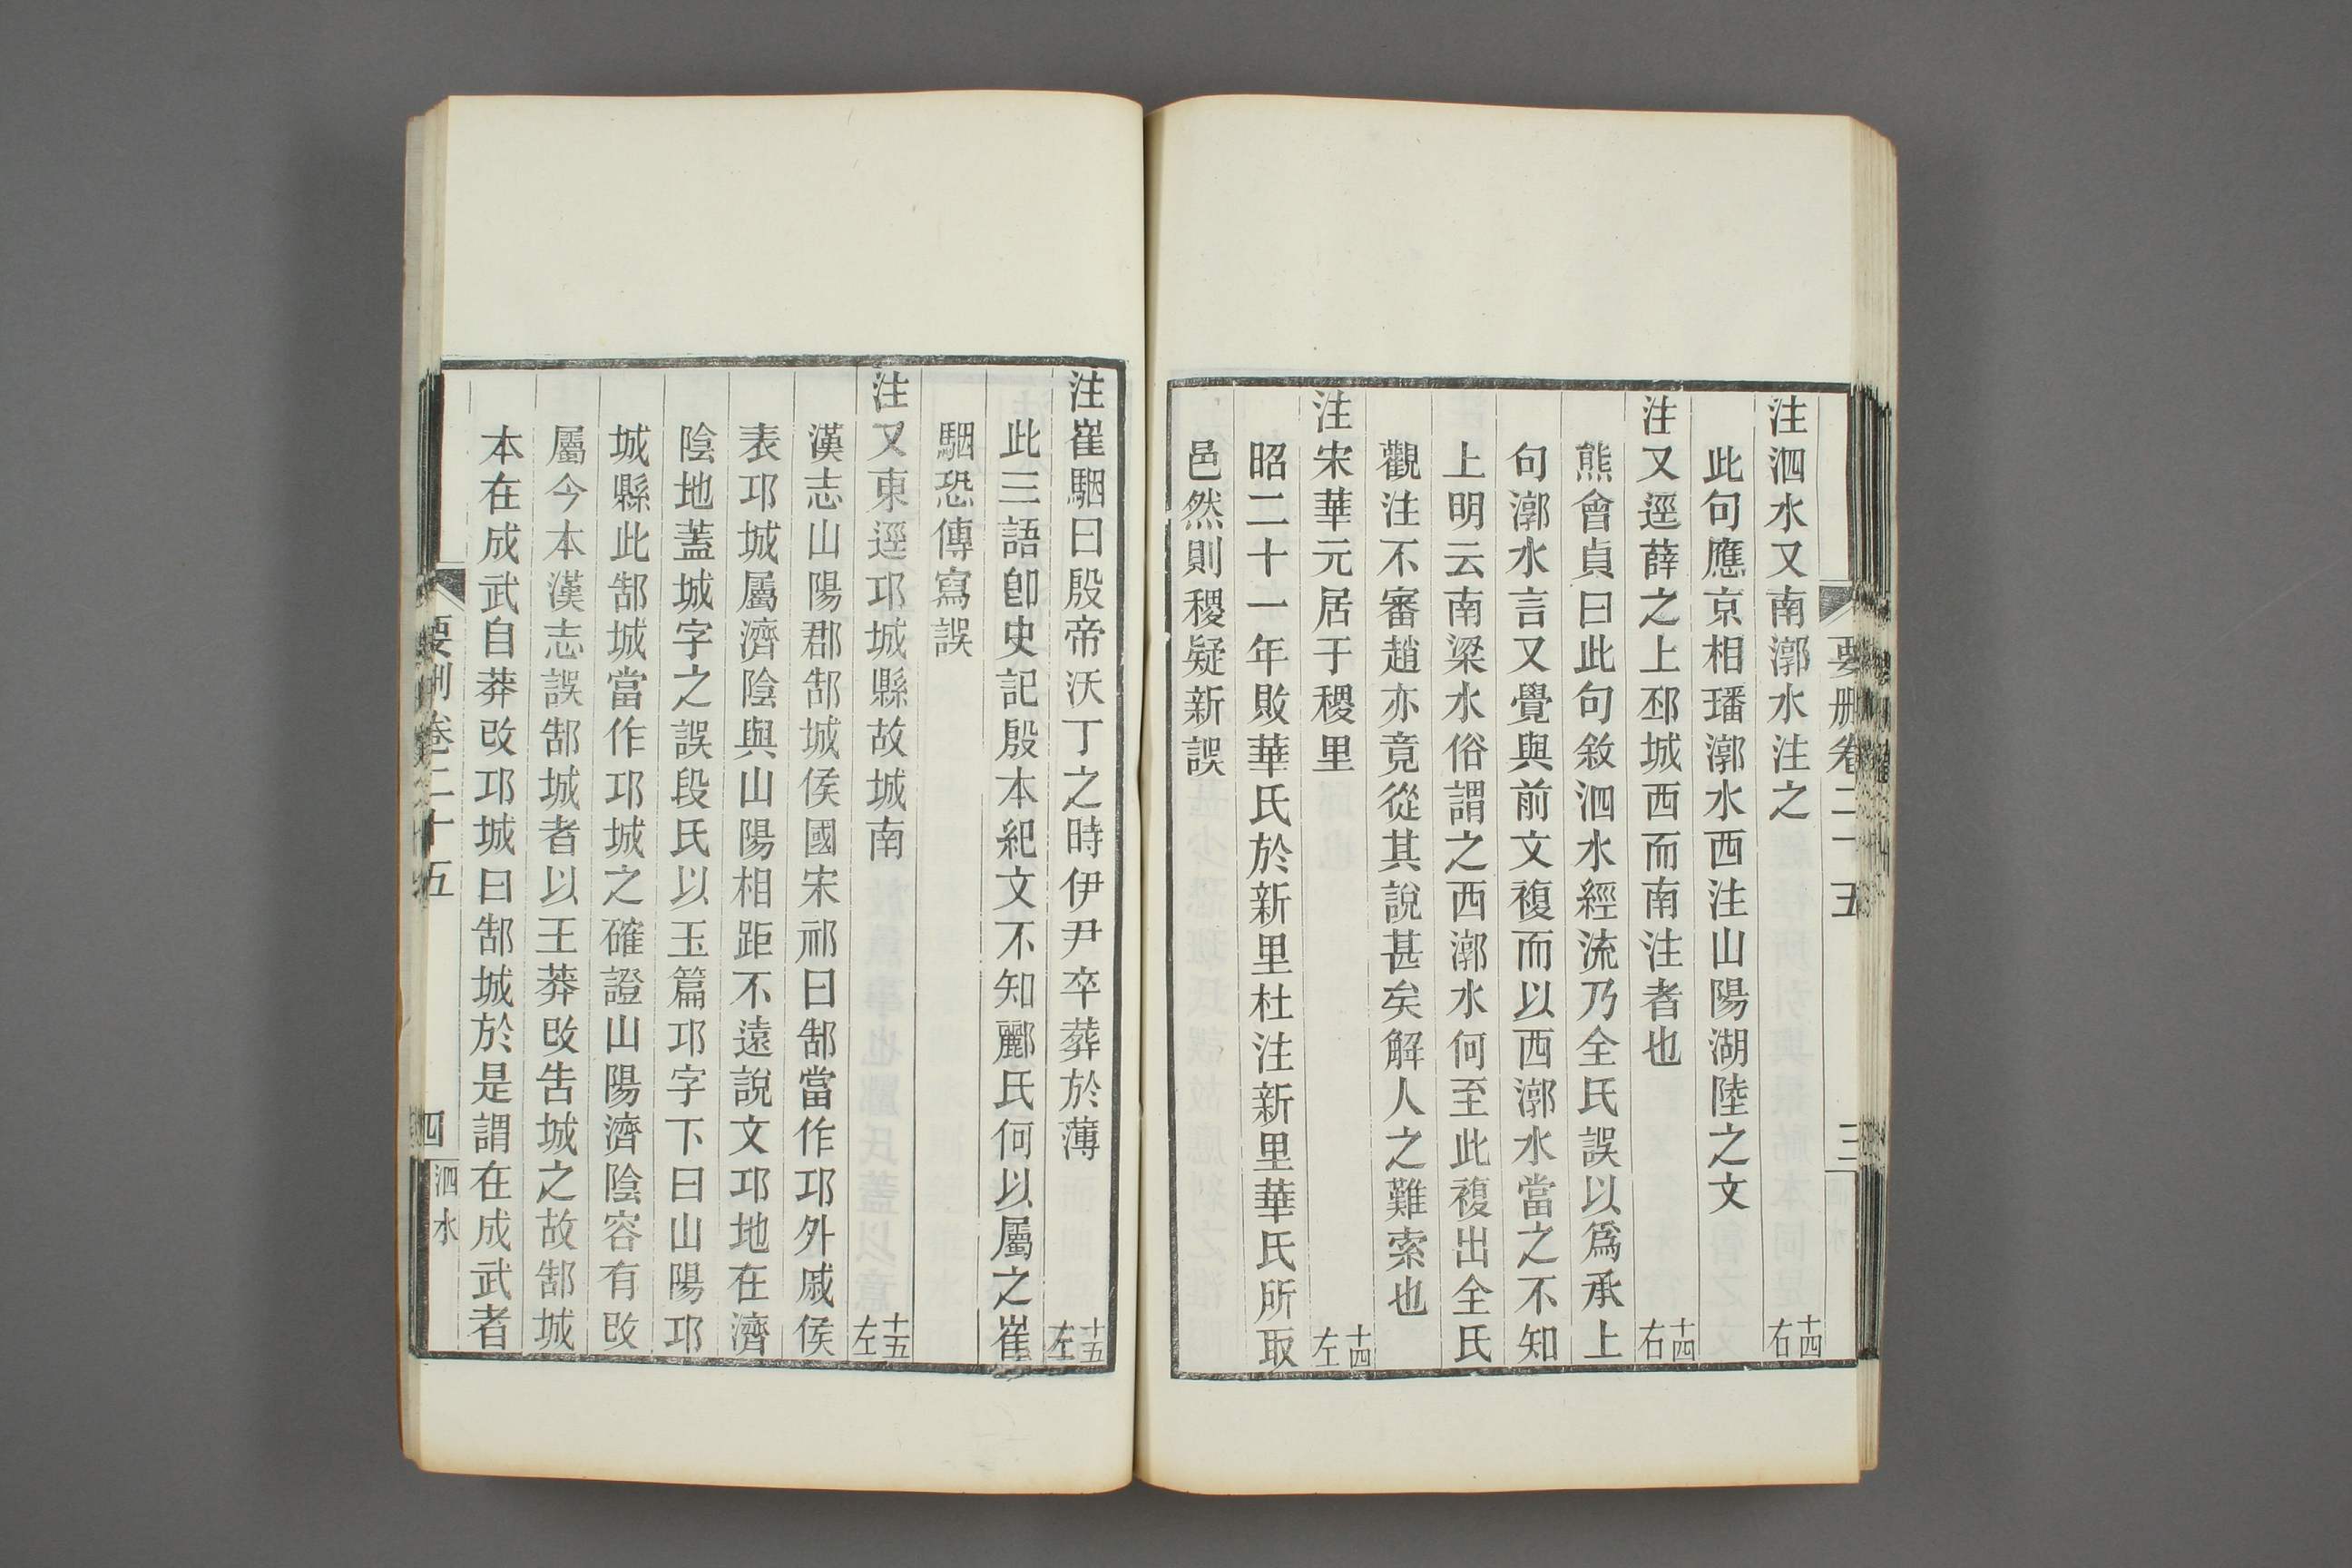 要删卷二十五
三
注泗水又南漷水注之 十四右
此句應京相璠漷水西注山陽湖陸之文
注又逕薛之上邳城西而南注者也 十四右
熊會貞曰此句敘泗水經流乃全氏誤以爲承上
句漷水言又覺與前文複而以西漷水當之不知
上明云南梁水俗謂之西漷水何至此複出全氏
觀注不審趙亦竟從其說甚矣解人之難索也
注宋華元居于稷里 十四左
昭二十一年敗華氏於新里杜注新里華氏所取
邑然則稷疑新誤
注崔駰曰殷帝沃丁之時伊尹卒葬於薄 十五左
此三語卽史記殷本紀文不知酈氏何以屬之崔
駰恐傳寫誤
注又東逕邛城縣故城南 十五左
漢志山陽郡郜城侯國宋祁曰郜當作邛外戚侯
表邛城屬濟陰與山陽相距不遠說文邛地在濟
陰地蓋城字之誤段氏以玉篇邛字下曰山陽邛
城縣此郜城當作邛城之確證山陽濟陰容有改
屬今本漢志誤郜城者以王莽改告城之故郜城
本在成武自莽改邛城曰郜城於是謂在成武者
要删卷二十五
四
泗水